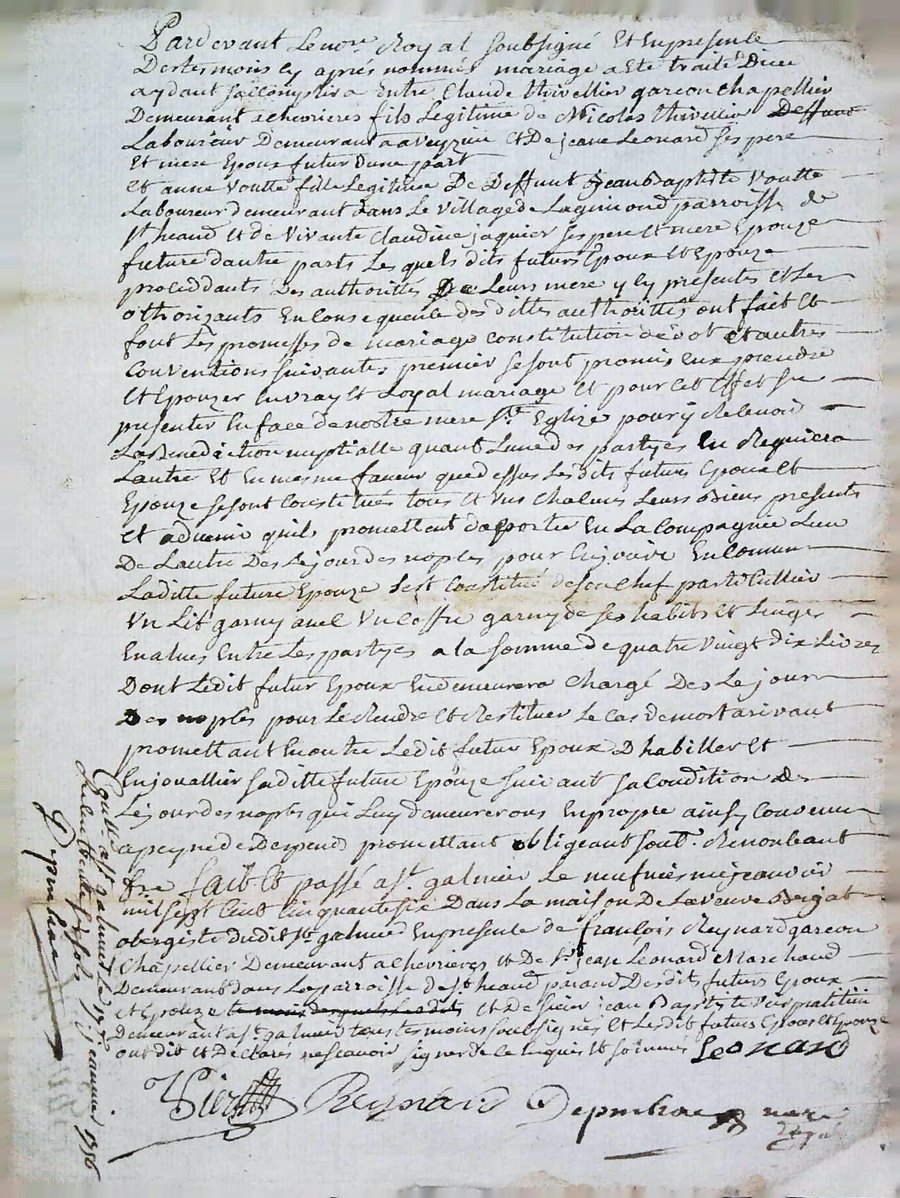 Pardevant Le nore. Royal Soubsigné Et En presence
Des tesmoins cy aprés nommés mariage a Eté traité Dieu
aydant sacomplira Entre Claude thivellier garcon chapellier
Demeurant a chevrieres fils Legitime de Nicolas thivellier Deffunt
Laboureur Demeurant a aveyzieu Et De jeane Leonard ses pere
Et mere Epoux futur d'une part
Et anne voutte fille Legitime De Deffunt jean Baptiste Voutte
Laboureur demeurant dans Le village de Lagimond parroisse de
st heand Et de vivante Claudine jaquier ses pere Et mere Epouze
future dautre parts Les quels dits futurs Epoux Et Epouze
proceddants des authorittés De Leurs mere y cy présentes Et Les
othorizants En Consequence des dittes authorittés ont fait Et
font Les promesses de mariage Constitution de dot Et autres
Conventions suivantes premier se sont promis eux prendre
Et Epouzer En vray Et Loyal mariage Et pour cet Effet se
presenter En face de nostre mere ste Eglize pour y Recevoir
La Benediction nuptialle quant Lune des partyes En Requiera
Lautre Et En mesme faveur que dessus Les dits futurs Epoux Et
Epouze se sont Constitués tous Et uns chacuns Leurs Biens presents
Et advenir quils promettent daporter En La Compagnie Lun
De Lautre Des Le jour des nopces pour En jouire En Comun
Laditte future Epouze sest Constitué de son chef particullier
Un Lit garny avec Un Coffre garny de ses habits Et Linges
Evalues Entre Les partyes a la somme de quatre vingt dix Livres
Dont Ledit futur Epoux En demeurera chargé Des Le jour
Des nopces pour Le Rendre Et Restituer Le cas de mort arivant
promettant En outre Ledit futur Epoux D'habiller Et
Enjouallier saditte future Epouze suivant sa Condition De
Le jour des nopces qui Luy demeureront En propre ainsy Convenu
a peyne de Despend promettant obligeant sout. Renonceant
fre fait Et passé a st. galmier Le neufviesme janvier
mil sept Cent Cinquante six Dans La maison De La veuve Brigat
obergiste dudit st galmier En presence de francois Reynard garcon
Chapellier Demeurant a chevrieres Et De sr. jean Leonard Marchand
Demeurant dans La parroisse de st heand parand Desdits futurs Epoux
Et Epouze Et De sieur jean Baptiste
Demeurant a st. galmier tous tesmoins soubsignés Et Lesdits futurs Epoux Et Epouze
ont dit Et Declarés ne scavoir signer de Ce Enquis Et sommés Leonard
Reynard
Collé a st galmier le 19e janvier 1756